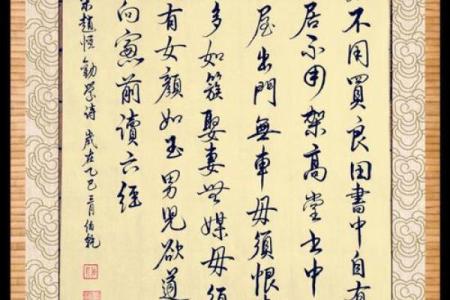 不用買良田書中自有
居不用架高堂書中
屋出門無車毋須恨
多如簇娶妻無媒毋須
有女顏如玉男兒欲遂
向窗前讀六經
宋趙恒勸學詩 歲在乙巳三月伯乾